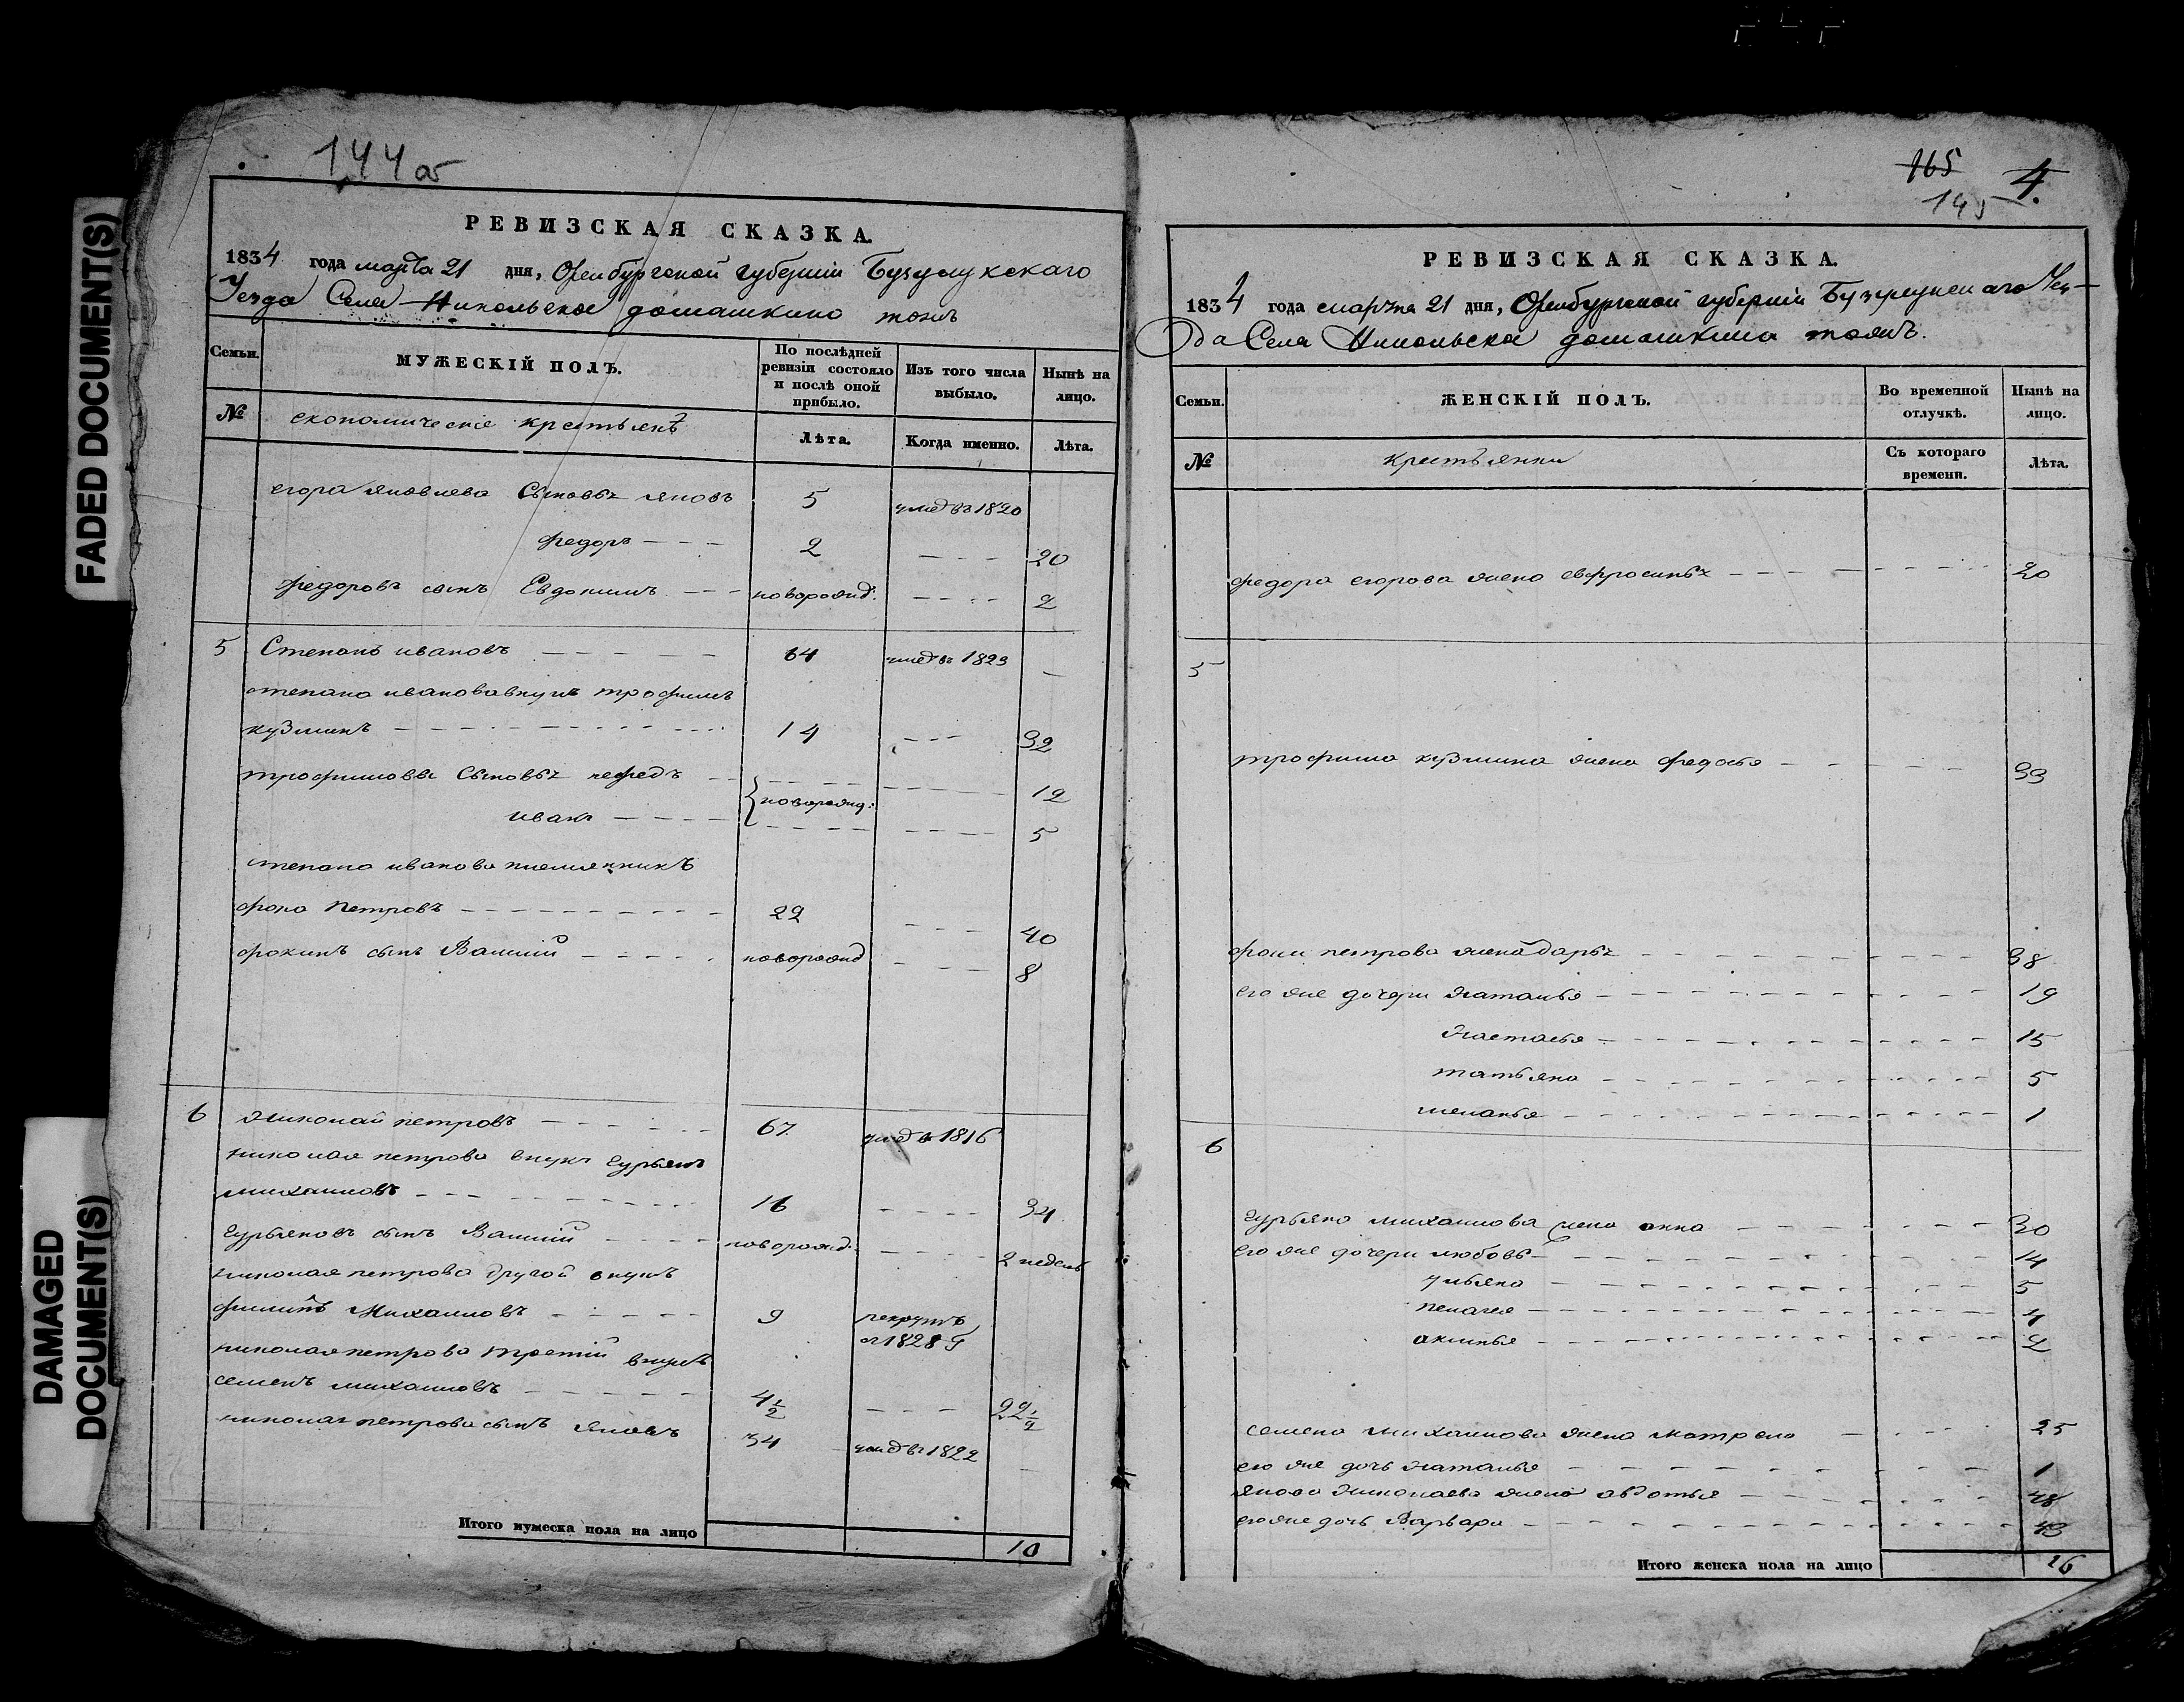 FADED DOCUMENT(S)
DAMAGED
DOCUMENT(S)
144 об
РЕВИЗСКАЯ СКАЗКА.
1834 года марта 21 дня, Оренбургской губернии Бузулукскаго
Уезда Села Никольское домашкино тожъ
Семьи.
МУЖЕСКІЙ ПОЛЪ.
По послѣдней ревизіи состояло и послѣ оной прибыло.
Изъ того числа выбыло.
Нынѣ на лицо.
№
економическіе крестьянѣ
Лѣта.
Когда именно.
Лѣта.
егора яковлева Сыновья яковъ 5 умеръ въ 1820
федоръ - - - 2 - - - 20
федоровъ сынъ Евдокимъ - - - новорожд: - - - - 2
5 Степанъ ивановъ - - - - - 64 умеръ въ 1823 —
степана иванова внукъ трофимъ
кузминъ - - - - - - - - 14 - - - 32
трофимовы Сыновья нефедъ - - - - - - - - - 12
новорожд:
иванъ - - - - - - - - 5
степана иванова племянникъ
фока петровъ - - - - - - - - 22 - - - 40
фокинъ сынъ Василий - - - - - новорожд - - - 8
6 Николай петровъ - - - - - - 67. умеръ въ 1816
николая петрова внукъ гурьянъ
михаиловъ - - - - - - - - 16 - - - - 34
гурьяновъ сынъ Василий - - - - новорожд: - - - - 2 недель
николая петрова другой внукъ
филипъ Михаиловъ - - - - - 9 рекрутъ
въ 1828 г
николая петрова третий внукъ
семенъ михаиловъ - - - - - 4½ - - - 22½
николая петрова сынъ яковъ 34 умеръ въ 1822 —
Итого мужеска пола на лицо 10
165
145
4.
РЕВИЗСКАЯ СКАЗКА.
1834 года марта 21 дня, Оренбургской губернии Бузулукскаго Уез-
да Села Никольска домашкина тожъ.
Семьи.
ЖЕНСКІЙ ПОЛЪ.
Во временной отлучкѣ.
Нынѣ на лицо.
№
крестьянки
Съ котораго времени.
Лѣта.
федора егорова жена евфросинья - - - - - - - - 20
5
трофима кузмина жена федосья - - - - - 33
фоки петрова жена дарья - - - - - - - - - 38
его же дочери наталья - - - - - - - - - - 19
настасья - - - - - - - - - - 15
татьяна - - - - - - - - - - 5
меланья - - - - - - - - - - 1
6
гурьяна михаилова жена анна - - - - - - - 30
его же дочери любовь - - - - - - - - - 14
ульяна - - - - - - - - - 5
пелагея - - - - - - - - - - 4
аксинья - - - - - - - - - - 2
семена михаилова жена матрена - - - - 25
его же дочь наталья - - - - - - - - - 1
якова николаева жена авдотья - - - - - - - 48
его же дочь Варвара - - - - - - - - - - 13
Итого женска пола на лицо 16